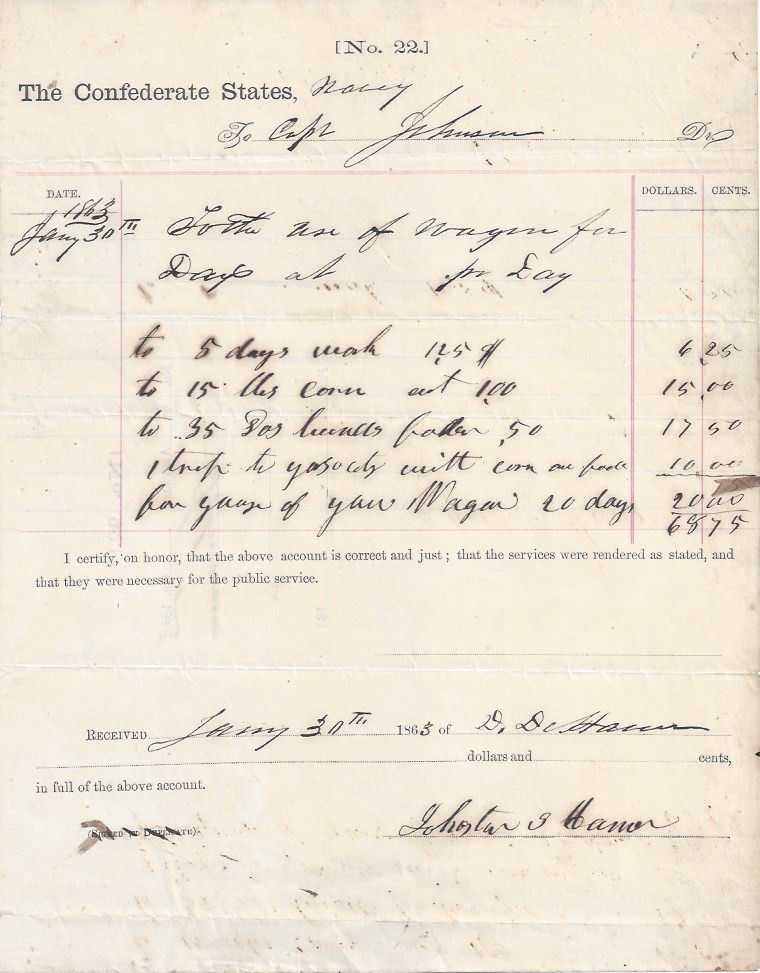 [No. 22.]
The Confederate States, Navy
To Capt Johnson Dr.
DATE. DOLLARS. CENTS.
1863
Jany 30TH To the use of Wagon for
Days at pr Day
to 5 days work 125 6 25
to 15 lbs corn at 1,00 15,00
to 35 bunds fodder 50 17 50
1 trip to with corn 10,00
for use of your Wagon 20 days 20 00
68 75
I certify, on honor, that the above account is correct and just ; that the services were rendered as stated, and
that they were necessary for the public service.
RECEIVED Jany 30TH 1863 of D. D.
dollars and cents,
in full of the above account.
(SIGNED IN DUPLICATE)
Manor